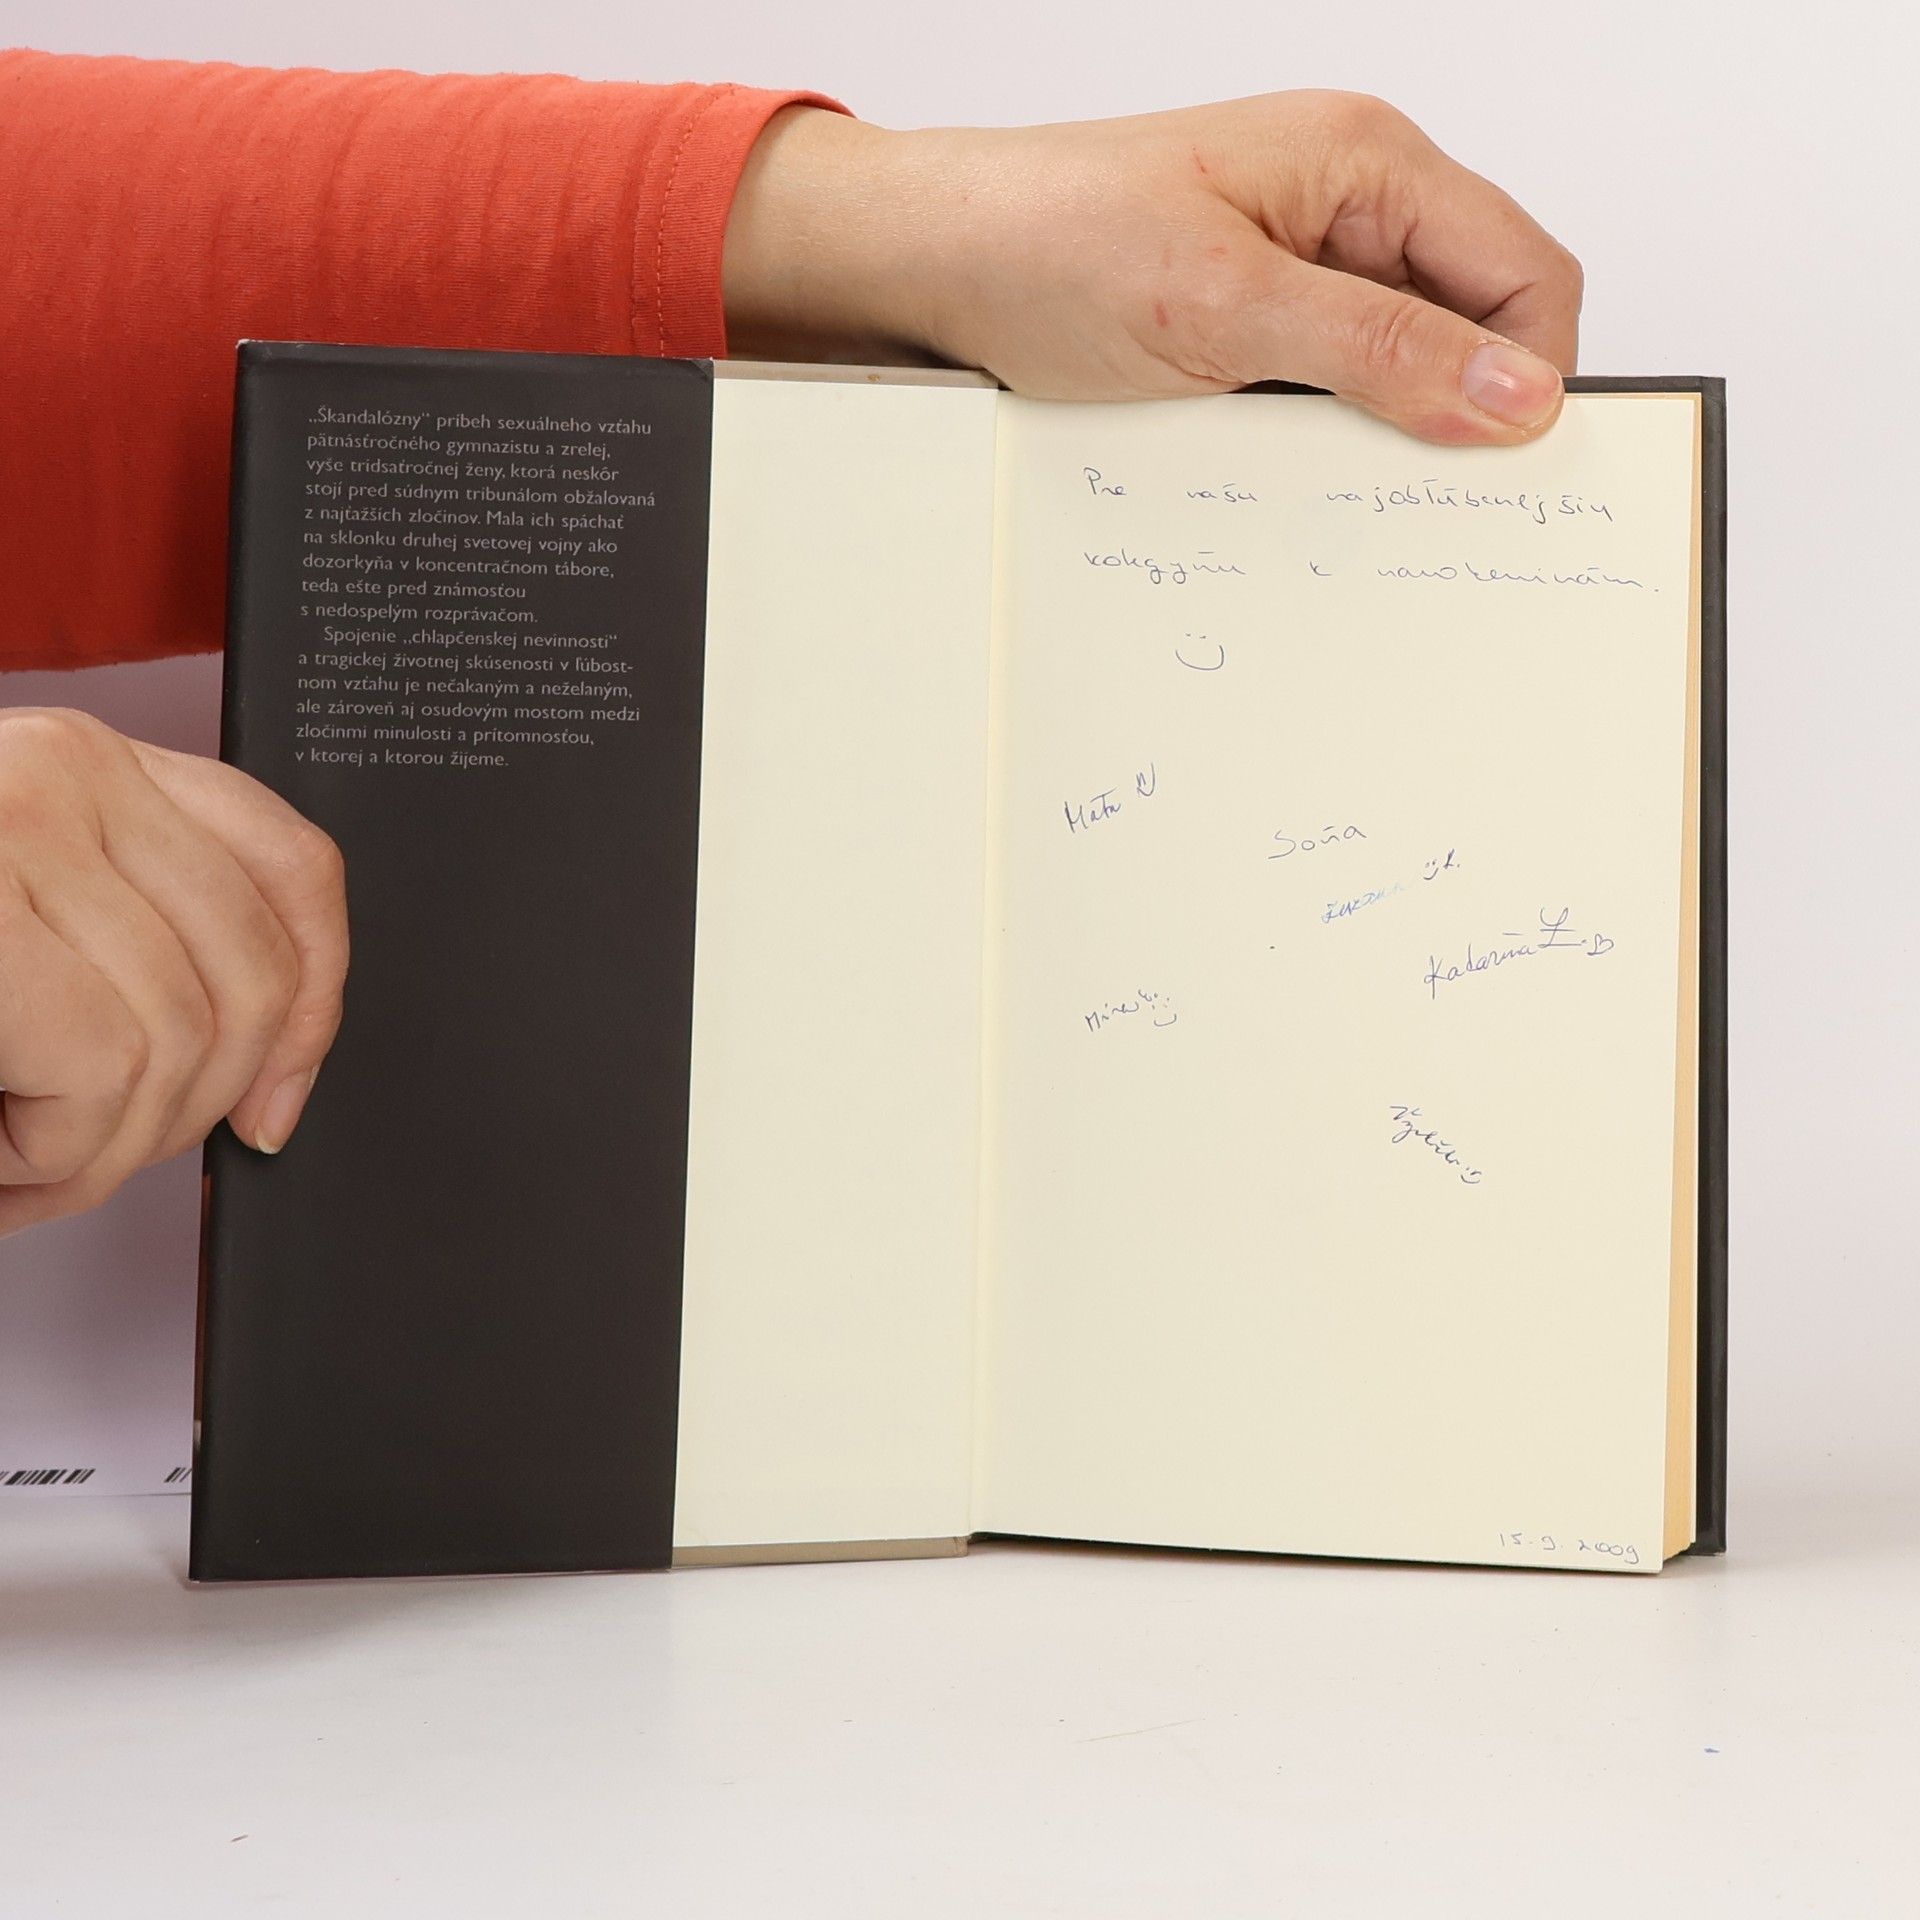 „Škandalózny“ príbeh sexuálneho vzťahu
pätnásťročného gymnazistu a zrelej,
vyše tridsaťročnej ženy, ktorá neskôr
stojí pred súdnym tribunálom obžalovaná
z najťažších zločinov. Mala ich spáchať
na sklonku druhej svetovej vojny ako
dozorkyňa v koncentračnom tábore,
teda ešte pred známosťou
s nedospelým rozprávačom.
Spojenie „chlapčenskej nevinnosti“
a tragickej životnej skúsenosti v ľúbost-
nom vzťahu je nečakaným a neželaným,
ale zároveň aj osudovým mostom medzi
zločinmi minulosti a prítomnosťou,
v ktorej a ktorou žijeme.
Pre našu najobľúbenejšiu
kolegyňu k narodeninám.
Maťa
Soňa
Katarína Z.
15.9.2009